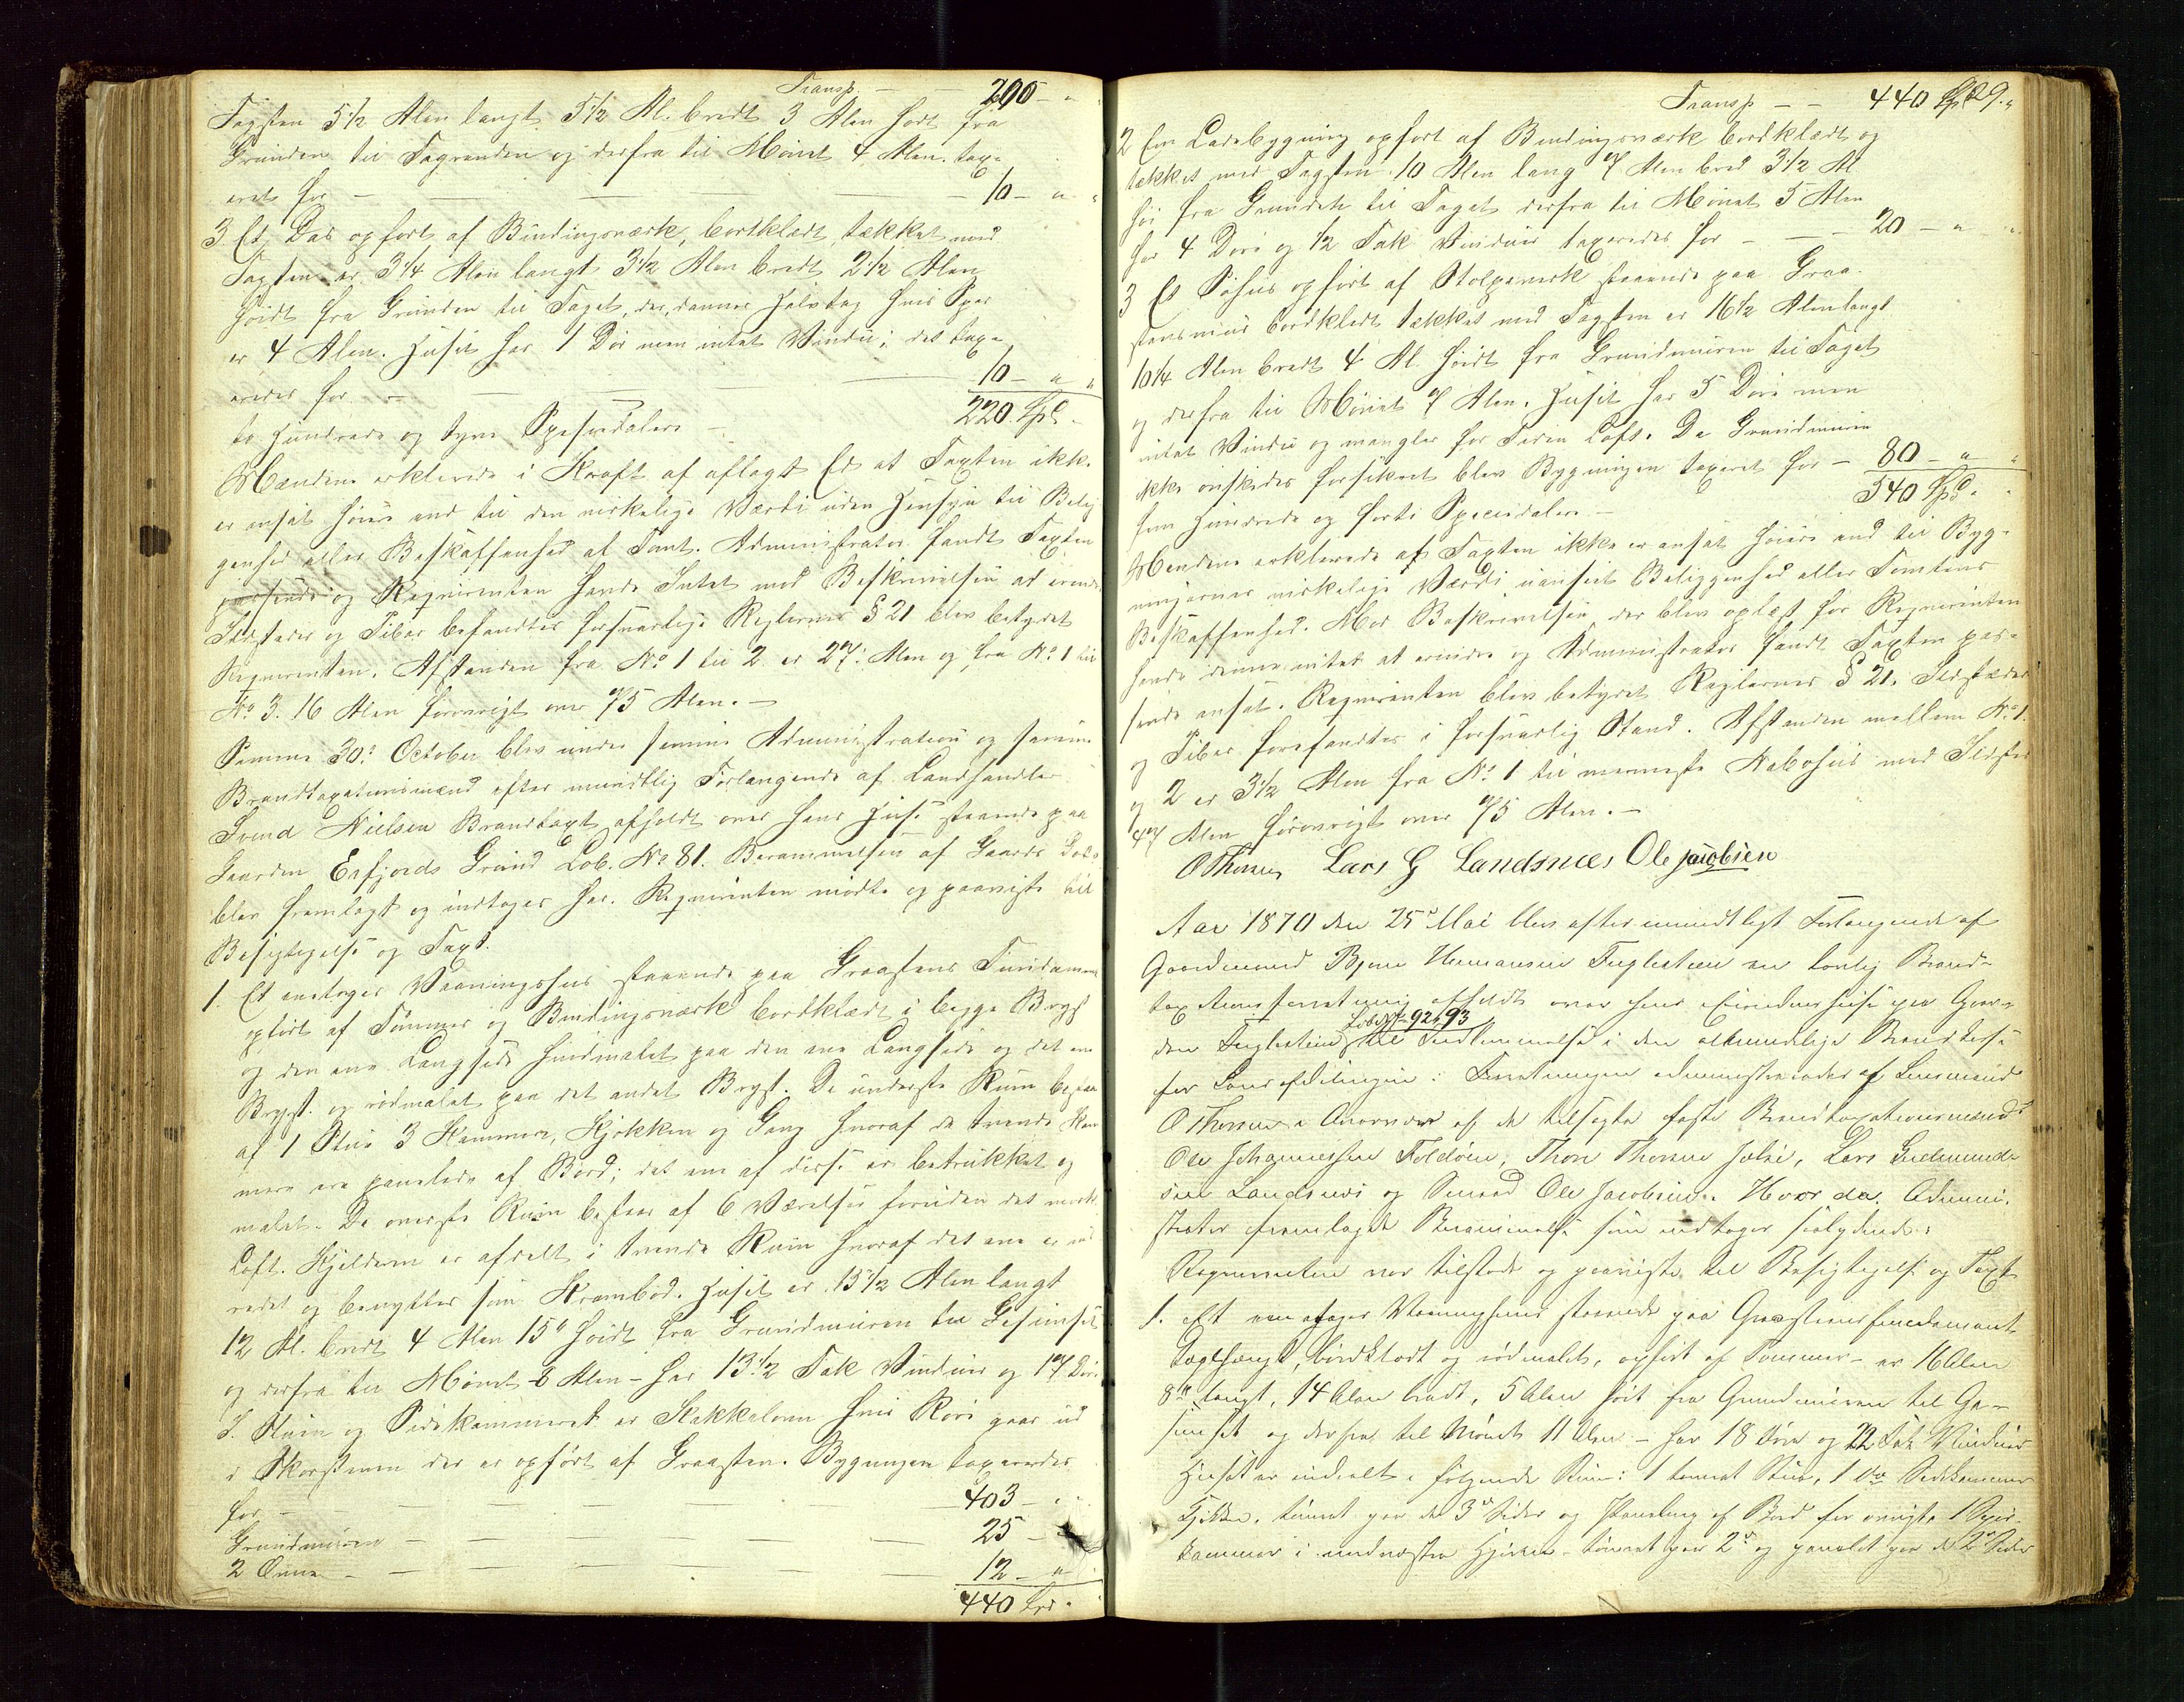 Transp. — 200 — "
Tagsten 5 1/2 Alen langt 5 1/2 Al. bredt 3 Alen høit fra
Grunden til Tagranden og derfra til Mønet 4 Alen. tax-
eret for — 10 — "
3. Et Das opført af Bindingsværk, bordklædt, tækket med
Tagsten er 3 1/4 Alen langt 3 1/2 Alen bredt 2 1/2 Alen
høidt fra Grunden til Taget, der danner Halvtag hvis Spær
er 4 Alen. Huset har 1 Dør men intet Vindu; det tax-
eredes for — 10 — "
to Hundrede og tyve Spesiedalere — 220 Spd.
Mændene erklærede i Kraft af aflagt Ed at Taxten ikke
er ansat høiere end til den virkelige Værdi uden Hensyn til Belig
genhed eller Beskaffenhed af Tomt. Administrator fandt Taxten
passende og Reqvirenten havde Intet mod Beskrivelsen at erindre
Ildsteder og Piber befandtes forsvarlige Reglernes § 21 blev betydet
Reqvirenten. Afstanden fra No 1 til 2 er 27 Alen og fra No 1 til
No 3. 16 Alen forøvrigt over 75 Alen. —
Samme 30. October blev under samme Administration og samme
Brandtaxationsmænd efter mundtlig Forlangende af Landhandler
Svend Nielsen Brandtaxt afholdt over hans Huse staaende paa
Gaarden Erfjords Grund Lob. No 81. Berammelsen af Gaards Dato
blev fremlagt og indtages her. Reqvirenten mødte og paaviste til
Besigtigelse og Taxt.
1. Et enetages Vaaningshus staaende paa Graastens Fundament
opført af Tømmer og Bindingsværk bordklædt i begge Bryst
og den ene Langside hvidmalet paa den ene Langside og det ene
Bryst. og rødmalet paa det andet Bryst. De underste Rum bestaar
af 1 Stue 3 Kammere, Kjøkken og Gang hvoraf de tvende Kam
mere ere panelede af Bord; det ene af disse er betrukket og
malet. De øverste Rum bestaar af 6 Værelser foruden det mørke
Loft. Kjelderen er afdelt i tvende Rum hvoraf det ene er ind
redet og benyttes som Krambod. Huset er 15 1/2 Alen langt
12 Al. bredt 4 Alen 15" høidt fra Grundmuren til Gesimset
og derfra til Mønet 8 Alen — har 13 1/2 Fak Vinduer og 17 Døre
I Stuen og Sidekammeret er Kakkelovn hvis Rør gaar ud
i Skorstenen der er opført af Graasten. Bygningen taxeredes
for — 403 — "
Grundmuren — 25 — "
2 Ovne — 12 — "
440 Spd.
Transp — — 440 Spd 29.
2 En Ladebygning opført af Bindingsværk bordklædt og
tækket med Tagsten. 10 Alen lang 7 Alen bred 3 1/2 Al
høi fra Grunden til Taget derfra til Mønet 5 Alen
har 4 Døre og 1/2 Fak Vinduer taxeredes for — 20 — "
3 Et Søhus opført af Stolpeværk staaende paa Graa-
stensmur bordklædt tækket med Tagsten er 16 1/2 Alen langt
10 1/4 Alen bredt 4 Al. høidt fra Grundmuren til Taget
og derfra til Mønet 7 Alen. Huset har 5 Døre men
intet Vindu og mangler for Tiden Loft. Da Grundmuren
ikke ønskedes forsikret blev Bygningen taxeret for — 80 — "
fem Hundrede og forti Speciedalere — 540 Spd.
Mændene erklærede at Taxten ikke er ansat høiere end til Byg-
ningernes virkelige Værdi uanseet Beliggenhed eller Tomtens
Beskaffenhed. Mod Beskrivelsen, der blev oplæst for Reqvirenten
havde denne intet at erindre og Administrator fandt Taxten pas-
sende ansat. Reqvirenten blev betydet Reglernes § 21. Ildsteder
og Piber forefandtes i forsvarlig Stand. Afstanden mellem No 1
og 2 er 3 1/2 Alen fra No 1 til nærmeste Nabohus med Ildsted
47 Alen forøvrigt over 75 Alen. —
O Thorsen Lars G Landsnæs Ole Jacobsen
Aar 1870 den 25de Mai blev efter mundtligt Forlangende af
Gaardmand Bjørn Hermansen Fuglesteen en lovlig Brand-
taxationsforretning afholdt over hans Eiendomshuse paa Gaar-
den Fuglesteen Lob No 92, 93 til Indlemmelse i den almindelige Brandkasse
for Landafdelingen: Forretningen administreredes af Lensmand
O Thorsen i Overvær af de tilsagte faste Brandtaxationsmænd
Ole Johannesen Foldøen, Thore Thorsen Jelse, Lars Gudmund-
sen Landsnæs og Svend Ole Jacobsen. Hvor da Admini-
strator fremlagde Berammelse som indtages saalydende:
Reqvirenten var tilstede og paaviste til Besigtigelse og Taxt
1. Et een etages Vaaningshuus staaende paa Graasteensfundament
Tagehængt, bordklædt og rødmalet, opført af Tømmer — er 16 Alen
8" langt, 14 Alen bredt, 5 Alen høit fra Grundmuren til Ge-
simset og derfra til Mønet 11 Alen — har 18 Døre og 22 Fak Vinduer
Huset er inddelt i følgende Rum: 1 tømret Stue, 1 do Sidekammer
Kjøkken, tømret paa de 3de Sider og Paneling af Bord for øvrigt, 1 Spise-
kammer i nordvestre Hjørne — tømret paa 2de og panelet paa de 2de Sider